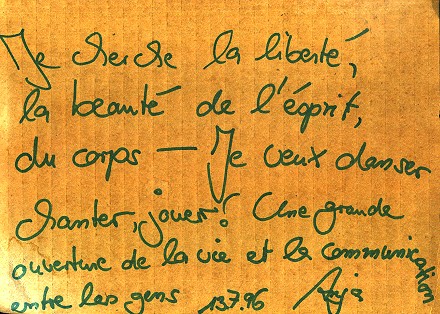 Je cherche la liberté,
la beauté de l'ésprit,
du corps — Je veux danser
chanter, jouer! Une grande
ouverture de la vie et la communication
entre les gens 13.7.96